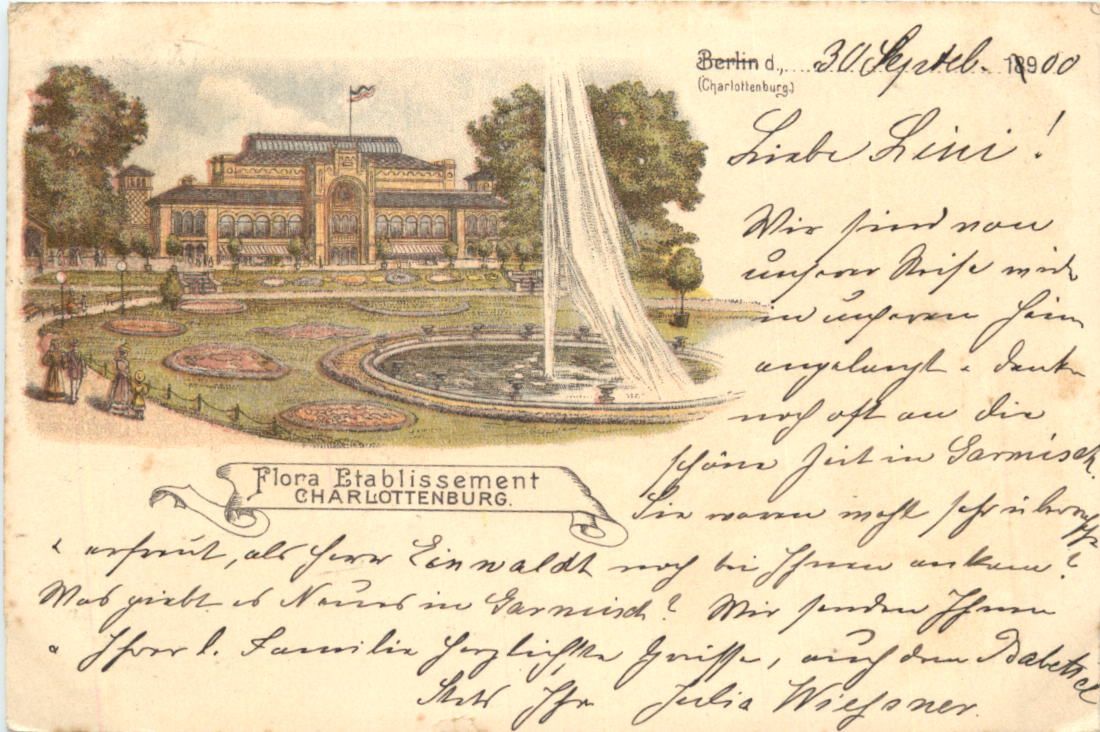 Berlin d., 30 Septeb. 1900
(Charlottenburg.)
Liebe Lini!
Wir sind von
unserer Reise wieder
in unseren Heim
angelangt u denken
noch oft an die
schöne Zeit in Garmisch.
Flora Etablissement
CHARLOTTENBURG.
Sie waren wohl sehr überrascht
u erfreut, als Herr Einwaldt noch bei Ihnen ankam?
Was giebt es Neues in Garmisch? Wir senden Ihnen
u Ihrer l. Familie herzlichste Grüsse, auch dem Babetterl
Stets Ihre Julia Wiessner.